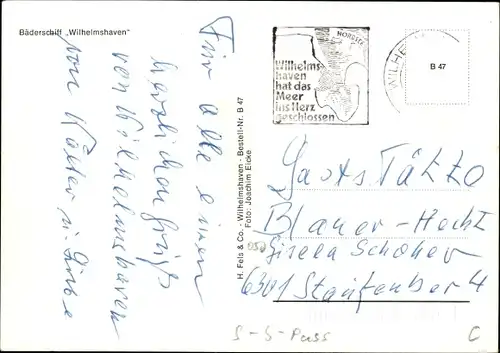 Bäderschiff „Wilhelmshaven"
Für alle einen
herzlichen Gruß
von Wilhelmshaven
von
H. Fels & Co. - Wilhelmshaven - Bestell-Nr. B 47
Foto: Joachim Eicke
NORDSEE
Wilhelms-
haven
hat das
Meer
ins Herz
geschlossen
WILHE
B 47
Blauer-Hecht
Gisela Schoher
6301 Staufenber 4
S-S-Pass
C